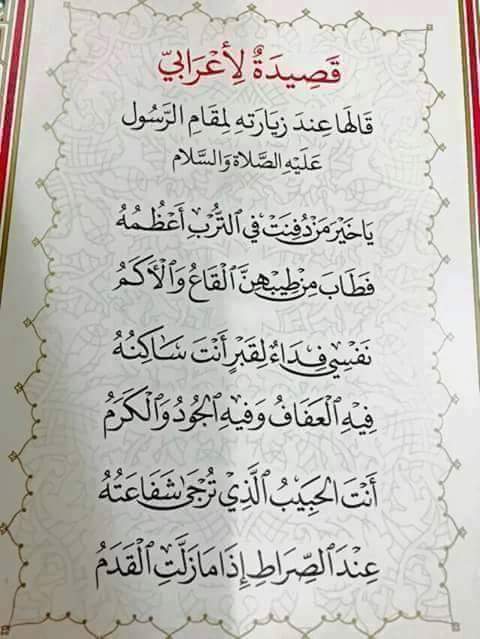 قَصِيدَةٌ لِأَعْرَابِيّ
قَالهَا عِندَ زيَارَتهِ لِمقَامِ الرَّسُول
عَلَيْهِ الصَّلاة وَالسَّلام
يَا خَيْرَ مَنْ دُفِنَتْ فِي التُّرْبِ أَعْظُمُهُ
فَطَابَ مِنْ طِيبِهِنَّ الْقَاعُ وَالْأَكَمُ
نَفْسِي فِدَاءٌ لِقَبْرٍ أَنْتَ سَاكِنُهُ
فِيهِ الْعَفَافُ وَفِيهِ الْجُودُ وَالْكَرَمُ
أَنْتَ الحَبِيبُ الَّذِي تُرْجَى شَفَاعَتُهُ
عِنْدَ الصِّرَاطِ إِذَا مَا زَلَّتِ الْقَدَمُ